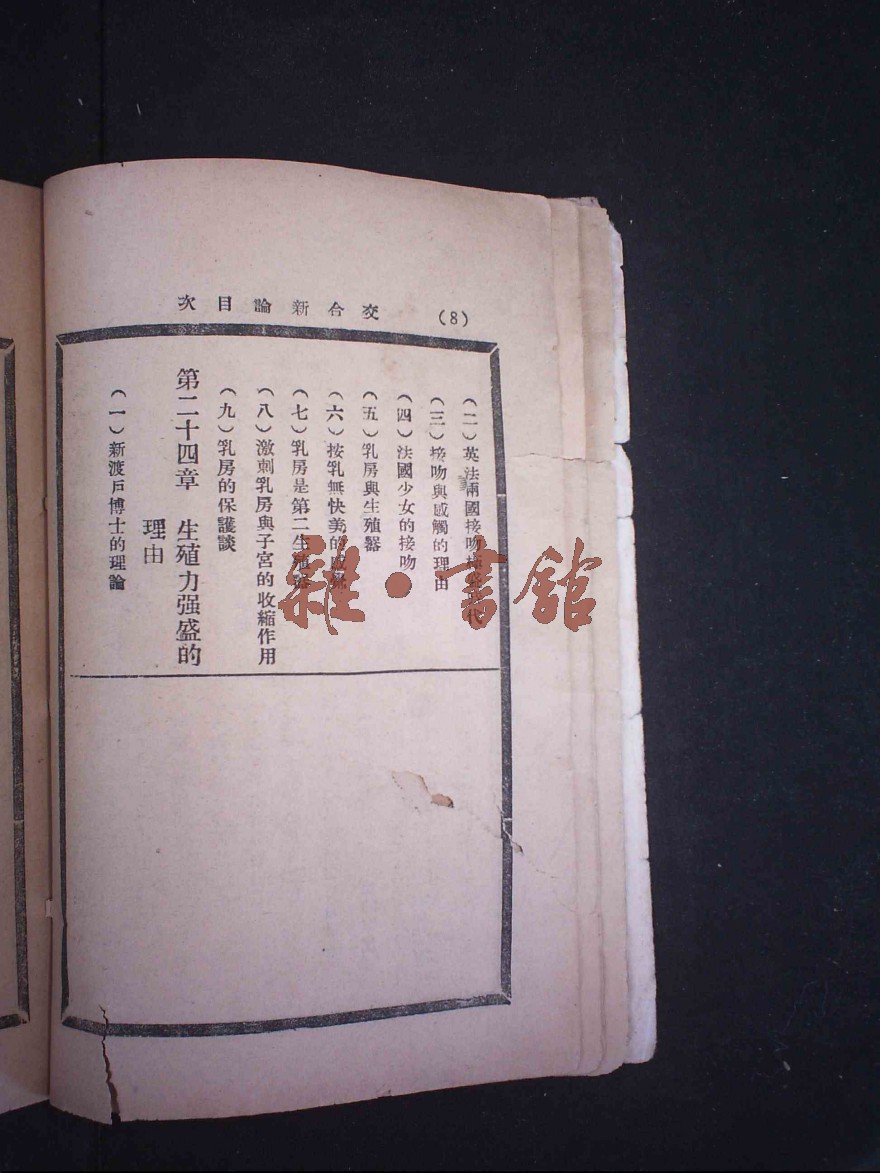 (8) 交合新論目次
(二)英法兩國接吻
(三)接吻與感觸的理由
(四)法國少女的接吻
(五)乳房與生殖器
(六)按乳無快美的
(七)乳房是第二生殖
(八)激刺乳房與子宮的收縮作用
(九)乳房的保護談
第二十四章 生殖力强盛的
理由
(一)新渡戶博士的理論
雜·書館